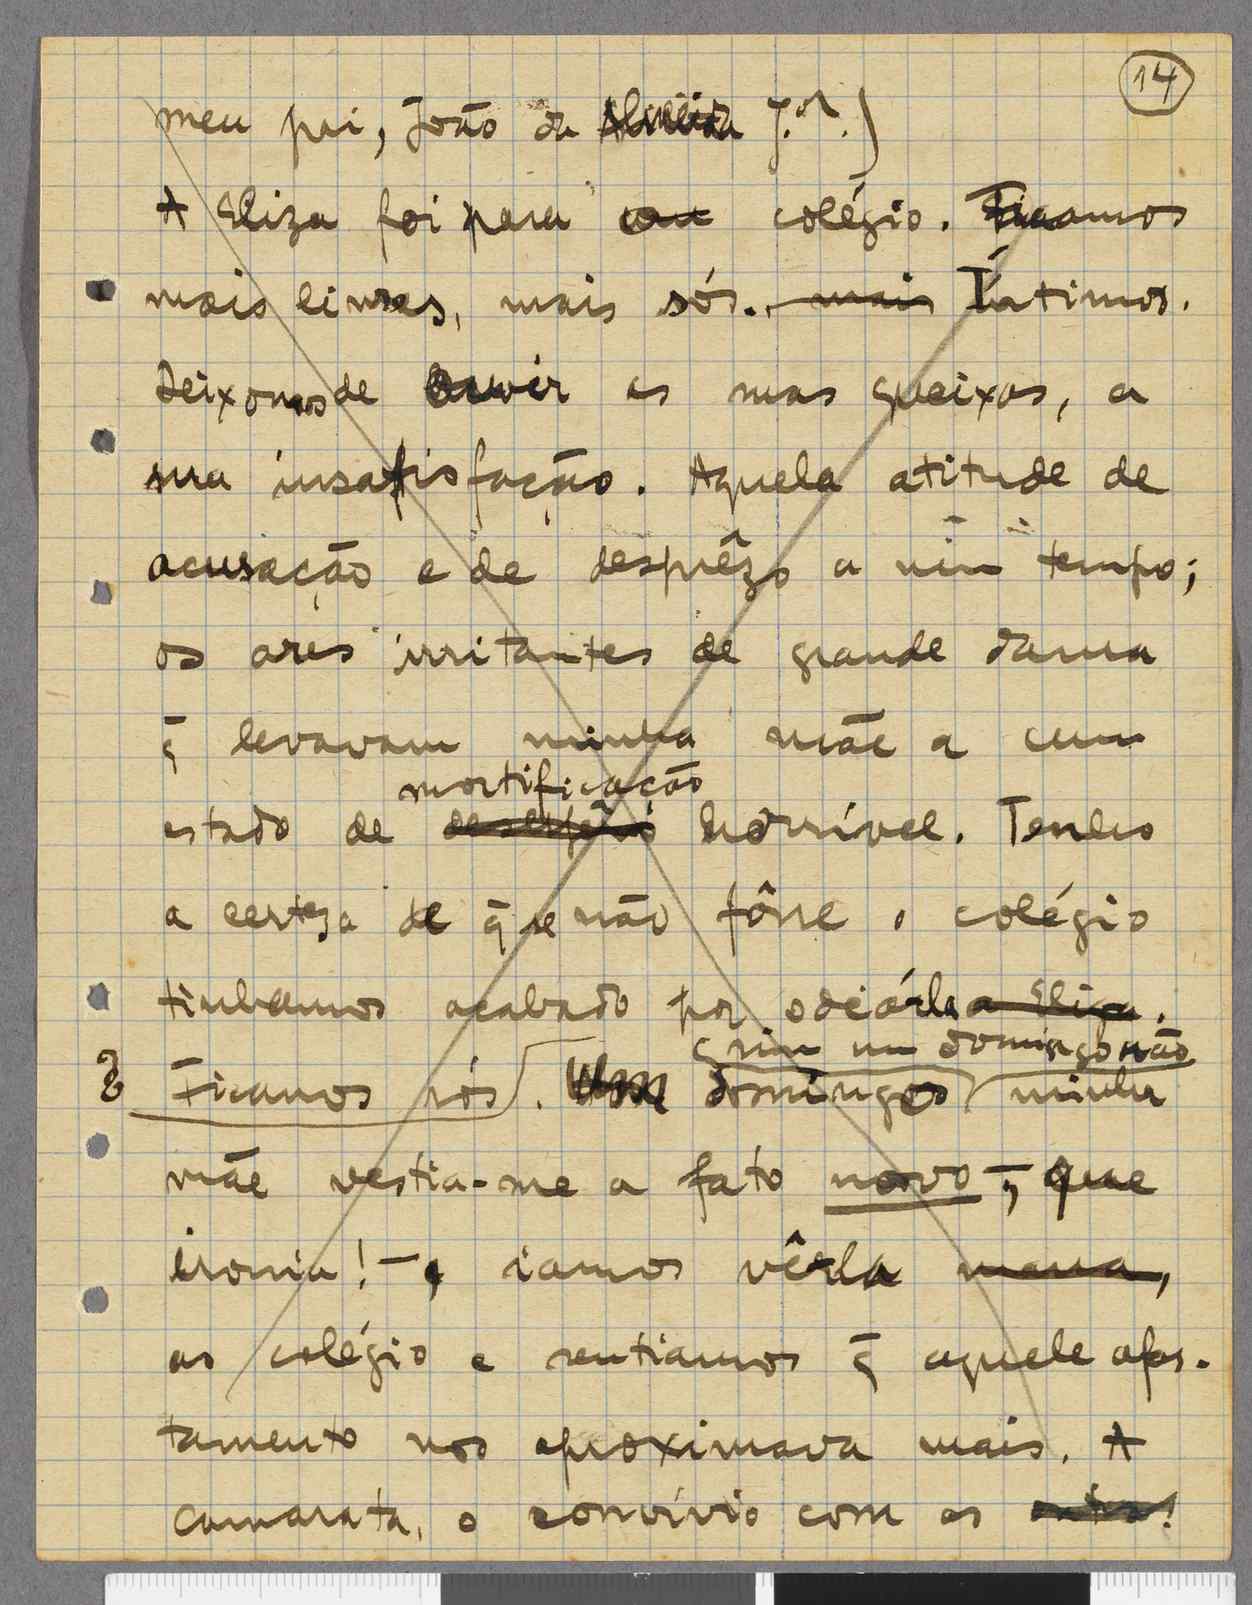 14
meu pai, João da Almeida J.or.)
A Eliza foi para um colégio. Ficamos
mais livres, mais sós. mais Íntimos.
Deixamos de ouvir as suas queixas, a
sua insatisfação. Aquela atitude de
acusação e de desprêzo a um tempo;
os ares irritantes de grande dama
q̄ levavam minha mãe a um
mortificação
estado de desespêro horrível. Tenho
a certeza de q̄ se não fôsse o colégio
tinhamos acabado por odeá-la a Eliza.
sim um domingo não
Ficamos nós. Um domingos minha
mãe vestia-me o fato novo –, que
ironia! –, iamos vê-la mana,
ao colégio e sentiamos q̄ aquele afas-
tamento nos aproximava mais. A
camarata, o convívio com as outras